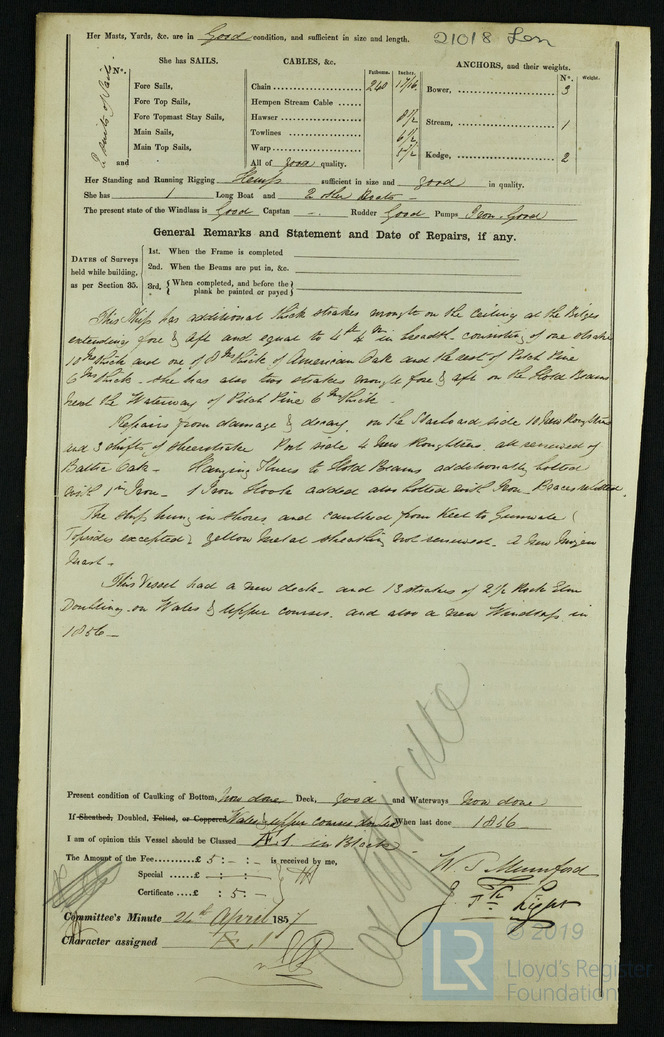 21018 Lon
Her Masts, Yards, &c. are in Good condition, and sufficient in size and length.
She has SAILS. CABLES, &c. ANCHORS, and their weights.
Fathoms. Inches. Nº. Weight.
Nº.
2 suits of Sails
Fore Sails, Chain 240 1 7/16 Bower, 3
Fore Top Sails, Hempen Stream Cable
Fore Topmast Stay Sails, Hawser 8 1/2 Stream, 1
Main Sails, Towlines 6 1/2
Main Top Sails, Warp 5 1/2 Kedge, 2
and All of good quality.
Her Standing and Running Rigging Hemp sufficient in size and good in quality.
She has 1 Long Boat and 2 other Boats
The present state of the Windlass is Good Capstan - Rudder Good Pumps Iron Good
General Remarks and Statement and Date of Repairs, if any.
DATES of Surveys held while building, as per Section 35.
1st. When the Frame is completed
2nd. When the Beams are put in, &c.
3rd. { When completed, and before the plank be painted or payed }
This Ship has additional thick strakes wrought on the ceiling at the Bilges
extending fore & aft and equal to 4 ft 4 in in breadth - consisting of one strake
10 In thick and one of 8 In thick of American Oak and the rest of Pitch Pine
6 In thick - she has also two strakes wrought fore & aft on the Hold Beams
next the Waterway of Pitch Pine 6 In thick
Repairs from damage & decay, on the Starboard side 10 New Roughtrees
and 3 shifts of sheerstrake Port side 4 New Roughtrees, all renewed of
Baltic Oak - Hanging Knees to Hold Beams additionally bolted
with 1 in Iron - 1 Iron Hook added also bolted with Iron - Braces rebolted.
The ship hung in shores and caulked from Keel to Gunwale (
Topsides excepted) yellow metal sheathing not renewed. A New Mizen
Mast -
This Vessel had a new deck - and 13 strakes of 2 1/2 Rock Elm
Doubling on Wales & Upper courses, and also a new Windlass in
1856 -
Certificate
Present condition of Caulking of Bottom, now done Deck, good and Waterways now done
If Sheathed, Doubled, Felted, or Coppered Wales & upper courses doubled When last done 1856
I am of opinion this Vessel should be Classed Æ 1 in Black
The Amount of the Fee £ 5 : - : - is received by me,
Special £ - : - : -
Certificate £ : 5 : -
W. J. Mumford
J. Light
Committee's Minute 24th April 1857
Character assigned Æ 1
LR © 2019
Lloyd's Register
Foundation